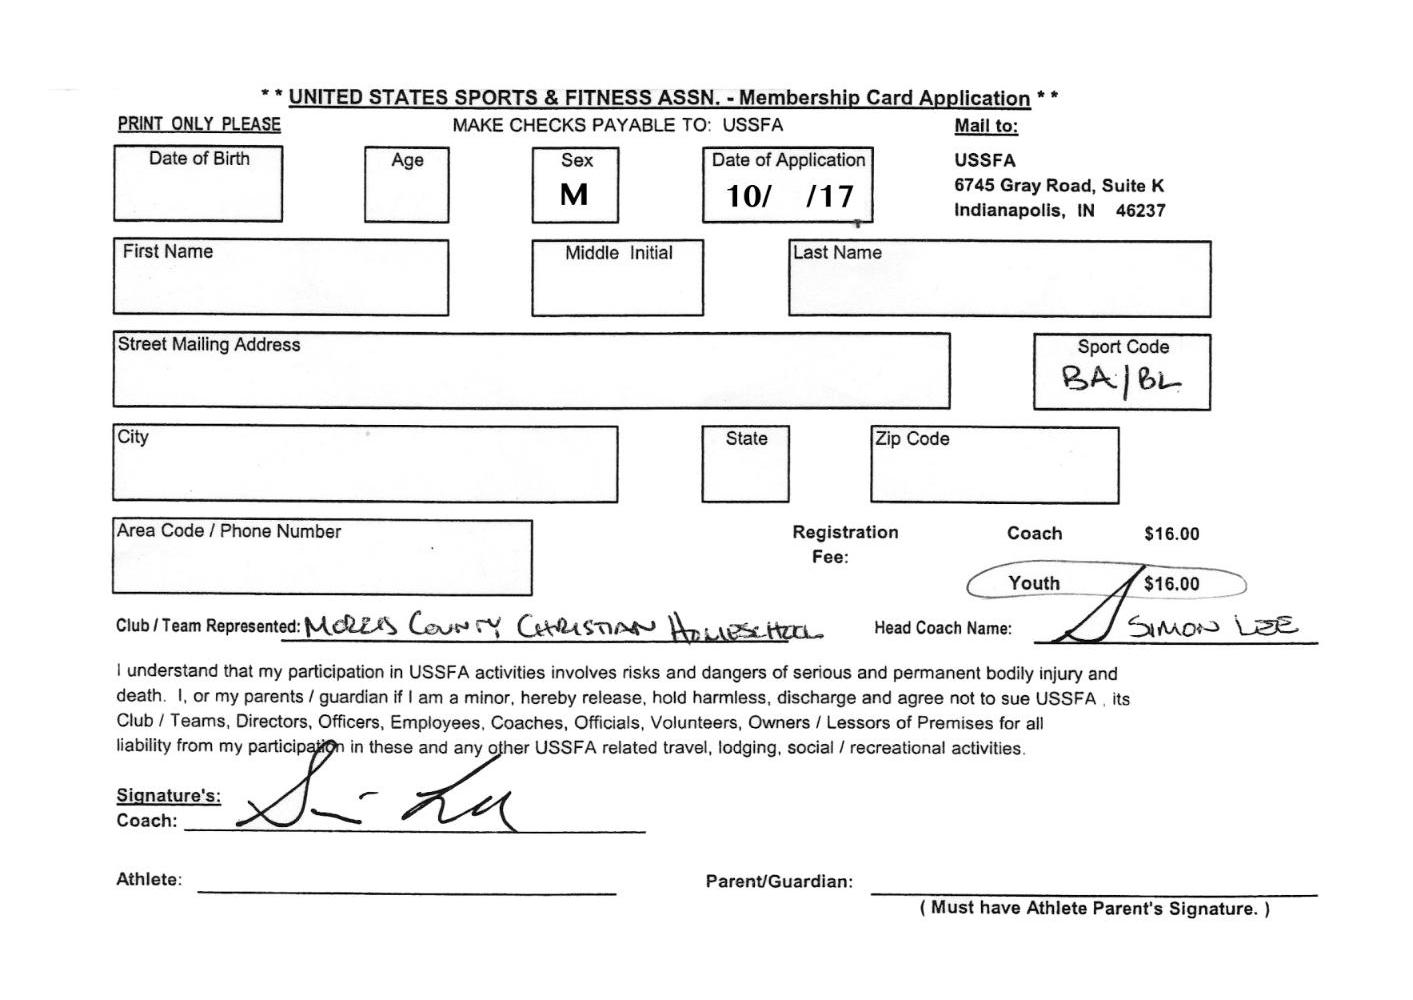 * * UNITED STATES SPORTS & FITNESS ASSN. - Membership Card Application * *
PRINT ONLY PLEASE
MAKE CHECKS PAYABLE TO: USSFA
Mail to:
Date of Birth
Age
Sex
M
Date of Application
10/ /17
USSFA
6745 Gray Road, Suite K
Indianapolis, IN 46237
First Name
Middle Initial
Last Name
Street Mailing Address
Sport Code
BA/BL
City
State
Zip Code
Area Code / Phone Number
Registration Fee:
Coach $16.00
Youth $16.00
Club / Team Represented: MORRIS COUNTY CHRISTIAN HOMESCHOOL
Head Coach Name: SIMON LEE
I understand that my participation in USSFA activities involves risks and dangers of serious and permanent bodily injury and
death. I, or my parents / guardian if I am a minor, hereby release, hold harmless, discharge and agree not to sue USSFA , its
Club / Teams, Directors, Officers, Employees, Coaches, Officials, Volunteers, Owners / Lessors of Premises for all
liability from my participation in these and any other USSFA related travel, lodging, social / recreational activities.
Signature's:
Coach: Simon Lee
Athlete:
Parent/Guardian:
( Must have Athlete Parent's Signature. )